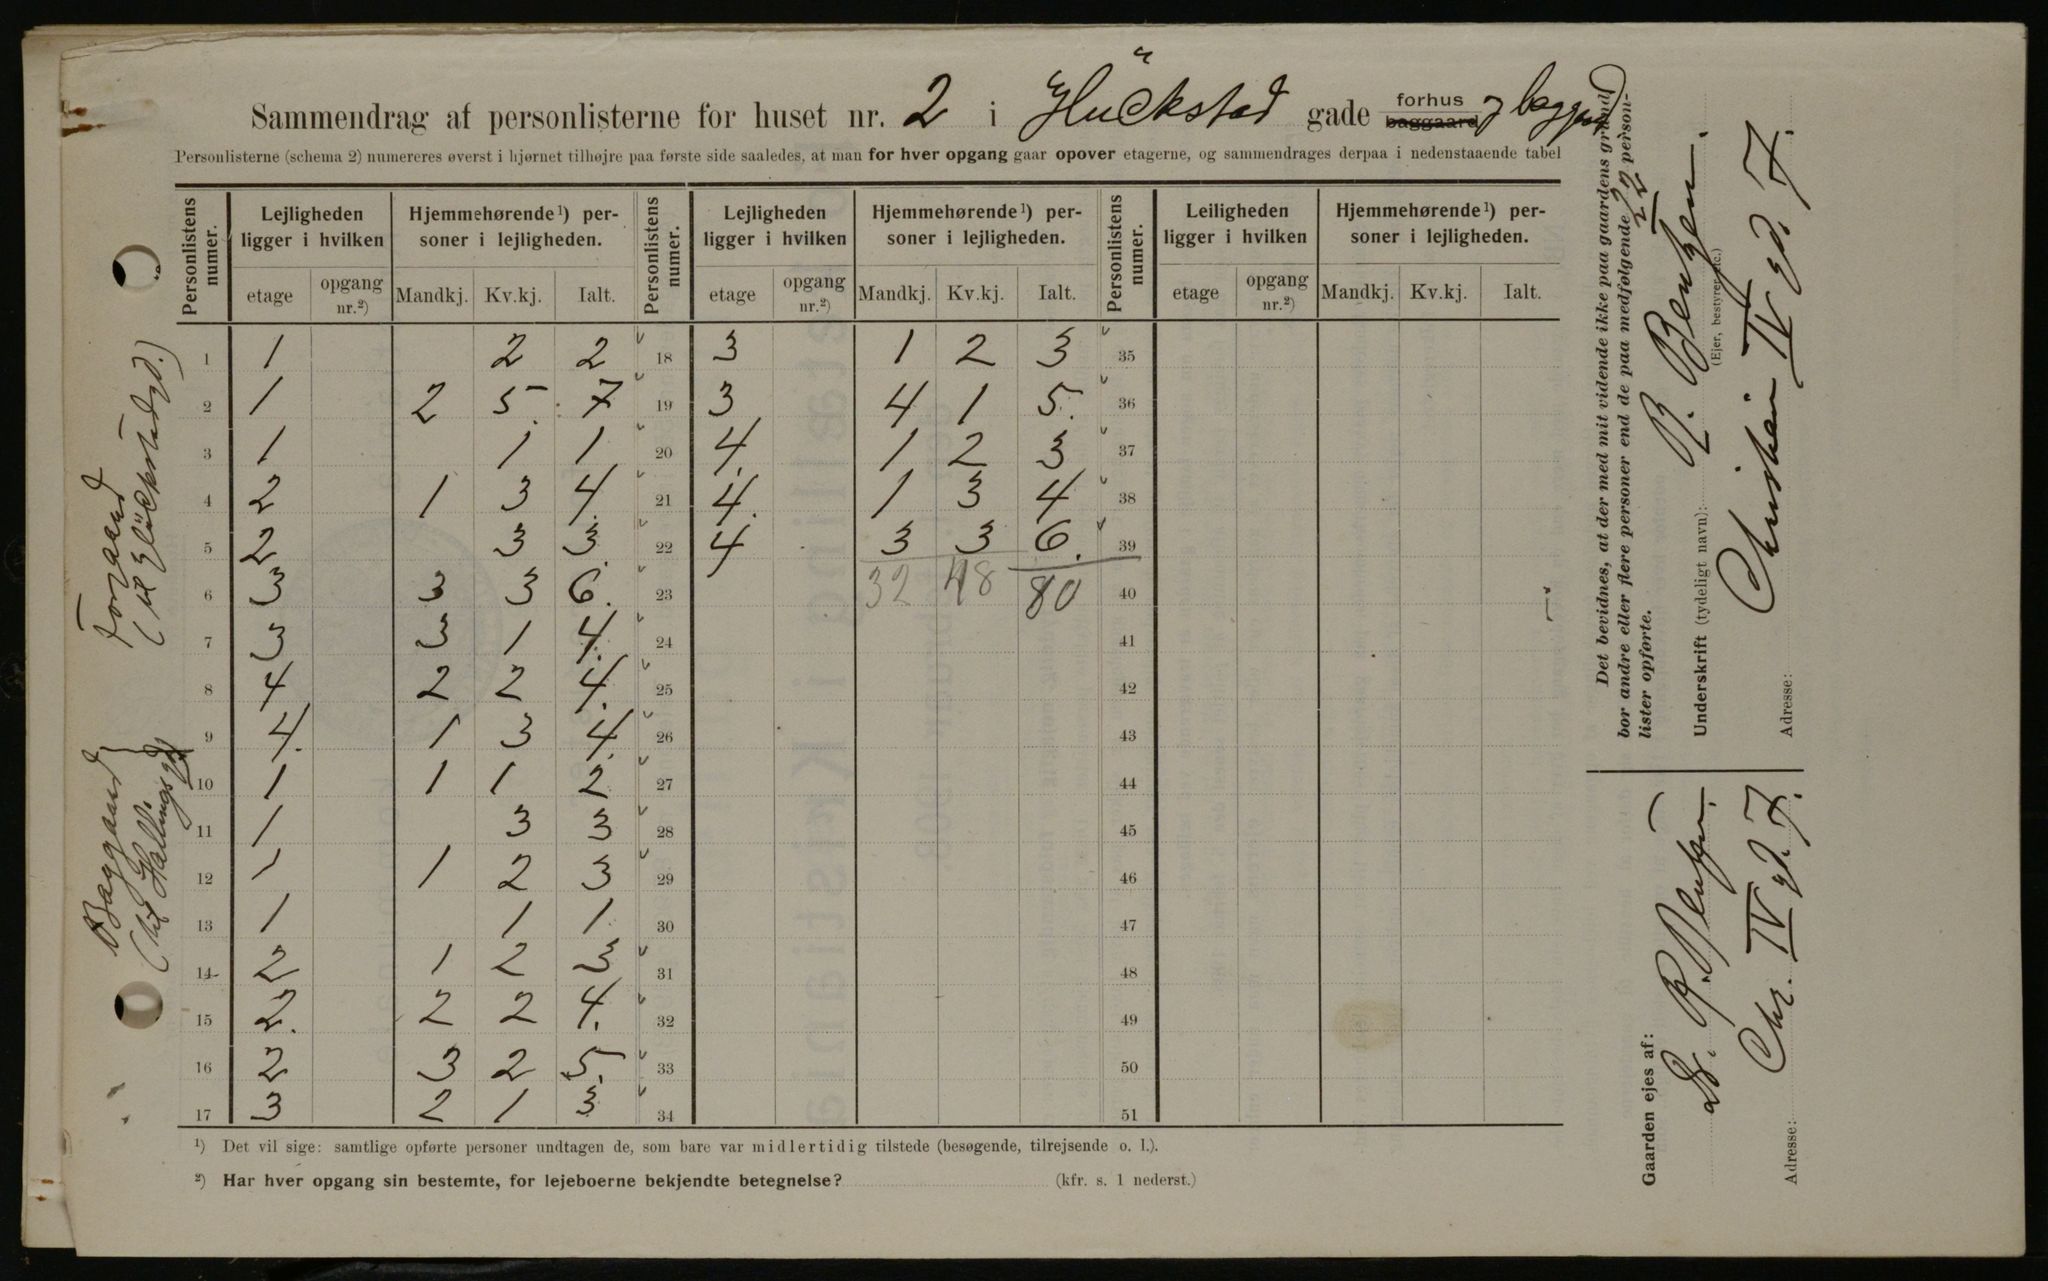 Sammendrag af personlisterne for huset nr. 2 i Glückstad gade forhus baggaard og baggaard
Personlisterne (schema 2) numereres øverst i hjørnet tilhøjre paa første side saaledes, at man for hver opgang gaar opover etagerne, og sammendrages derpaa i nedenstaaende tabel
Personlistens numer. Lejligheden ligger i hvilken Hjemmehørende¹) personer i lejligheden. Personlistens numer. Lejligheden ligger i hvilken Hjemmehørende¹) personer i lejligheden. Personlistens numer. Leiligheden ligger i hvilken Hjemmehørende¹) personer i lejligheden.
etage opgang nr.²) Mandkj. Kv.kj. Ialt. etage opgang nr.²) Mandkj. Kv.kj. Ialt. etage opgang nr.²) Mandkj. Kv.kj. Ialt.
1 1 2 2 18 3 1 2 3 35
2 1 2 5. 7 19 3 4 1 5. 36
3 1 1 1 20 4. 1 2 3 37
4 2 1 3 4. 21 4. 1 3 4 38
5 2 3 3. 22 4 3 3 6. 39
6 3 3 3 6. 23 32 48 80 40
7 3 3 1 4. 24 41
8 4 2 2 4. 25 42
9 4. 1 3 4. 26 43
10 1 1 1 2. 27 44
11 1 3 3 28 45
12 1 1 2 3 29 46
13 1 1 1 30 47
14 2 1 2 3 31 48
15 2. 2 2 4. 32 49
16 2 3 2 5. 33 50
17 3 2 1 3 34 51
¹) Det vil sige: samtlige opførte personer undtagen de, som bare var midlertidig tilstede (besøgende, tilrejsende o. l.).
²) Har hver opgang sin bestemte, for lejeboerne bekjendte betegnelse? (kfr. s. 1 nederst.)
Forgaard
(til Glückstadgd.)
Baggaard
(til Hallingsgd)
Det bevidnes, at der med mit vidende ikke paa gaardens grund
bor andre eller flere personer end de paa medfølgende 22 person-
lister opførte.
Underskrift (tydeligt navn): R. Bentzen.
(Ejer, bestyrer etc.)
Adresse: Christian IV gd. 7.
Gaarden ejes af:
Dr. R. Bentzen.
Adresse: Chr. IV gd. 7.